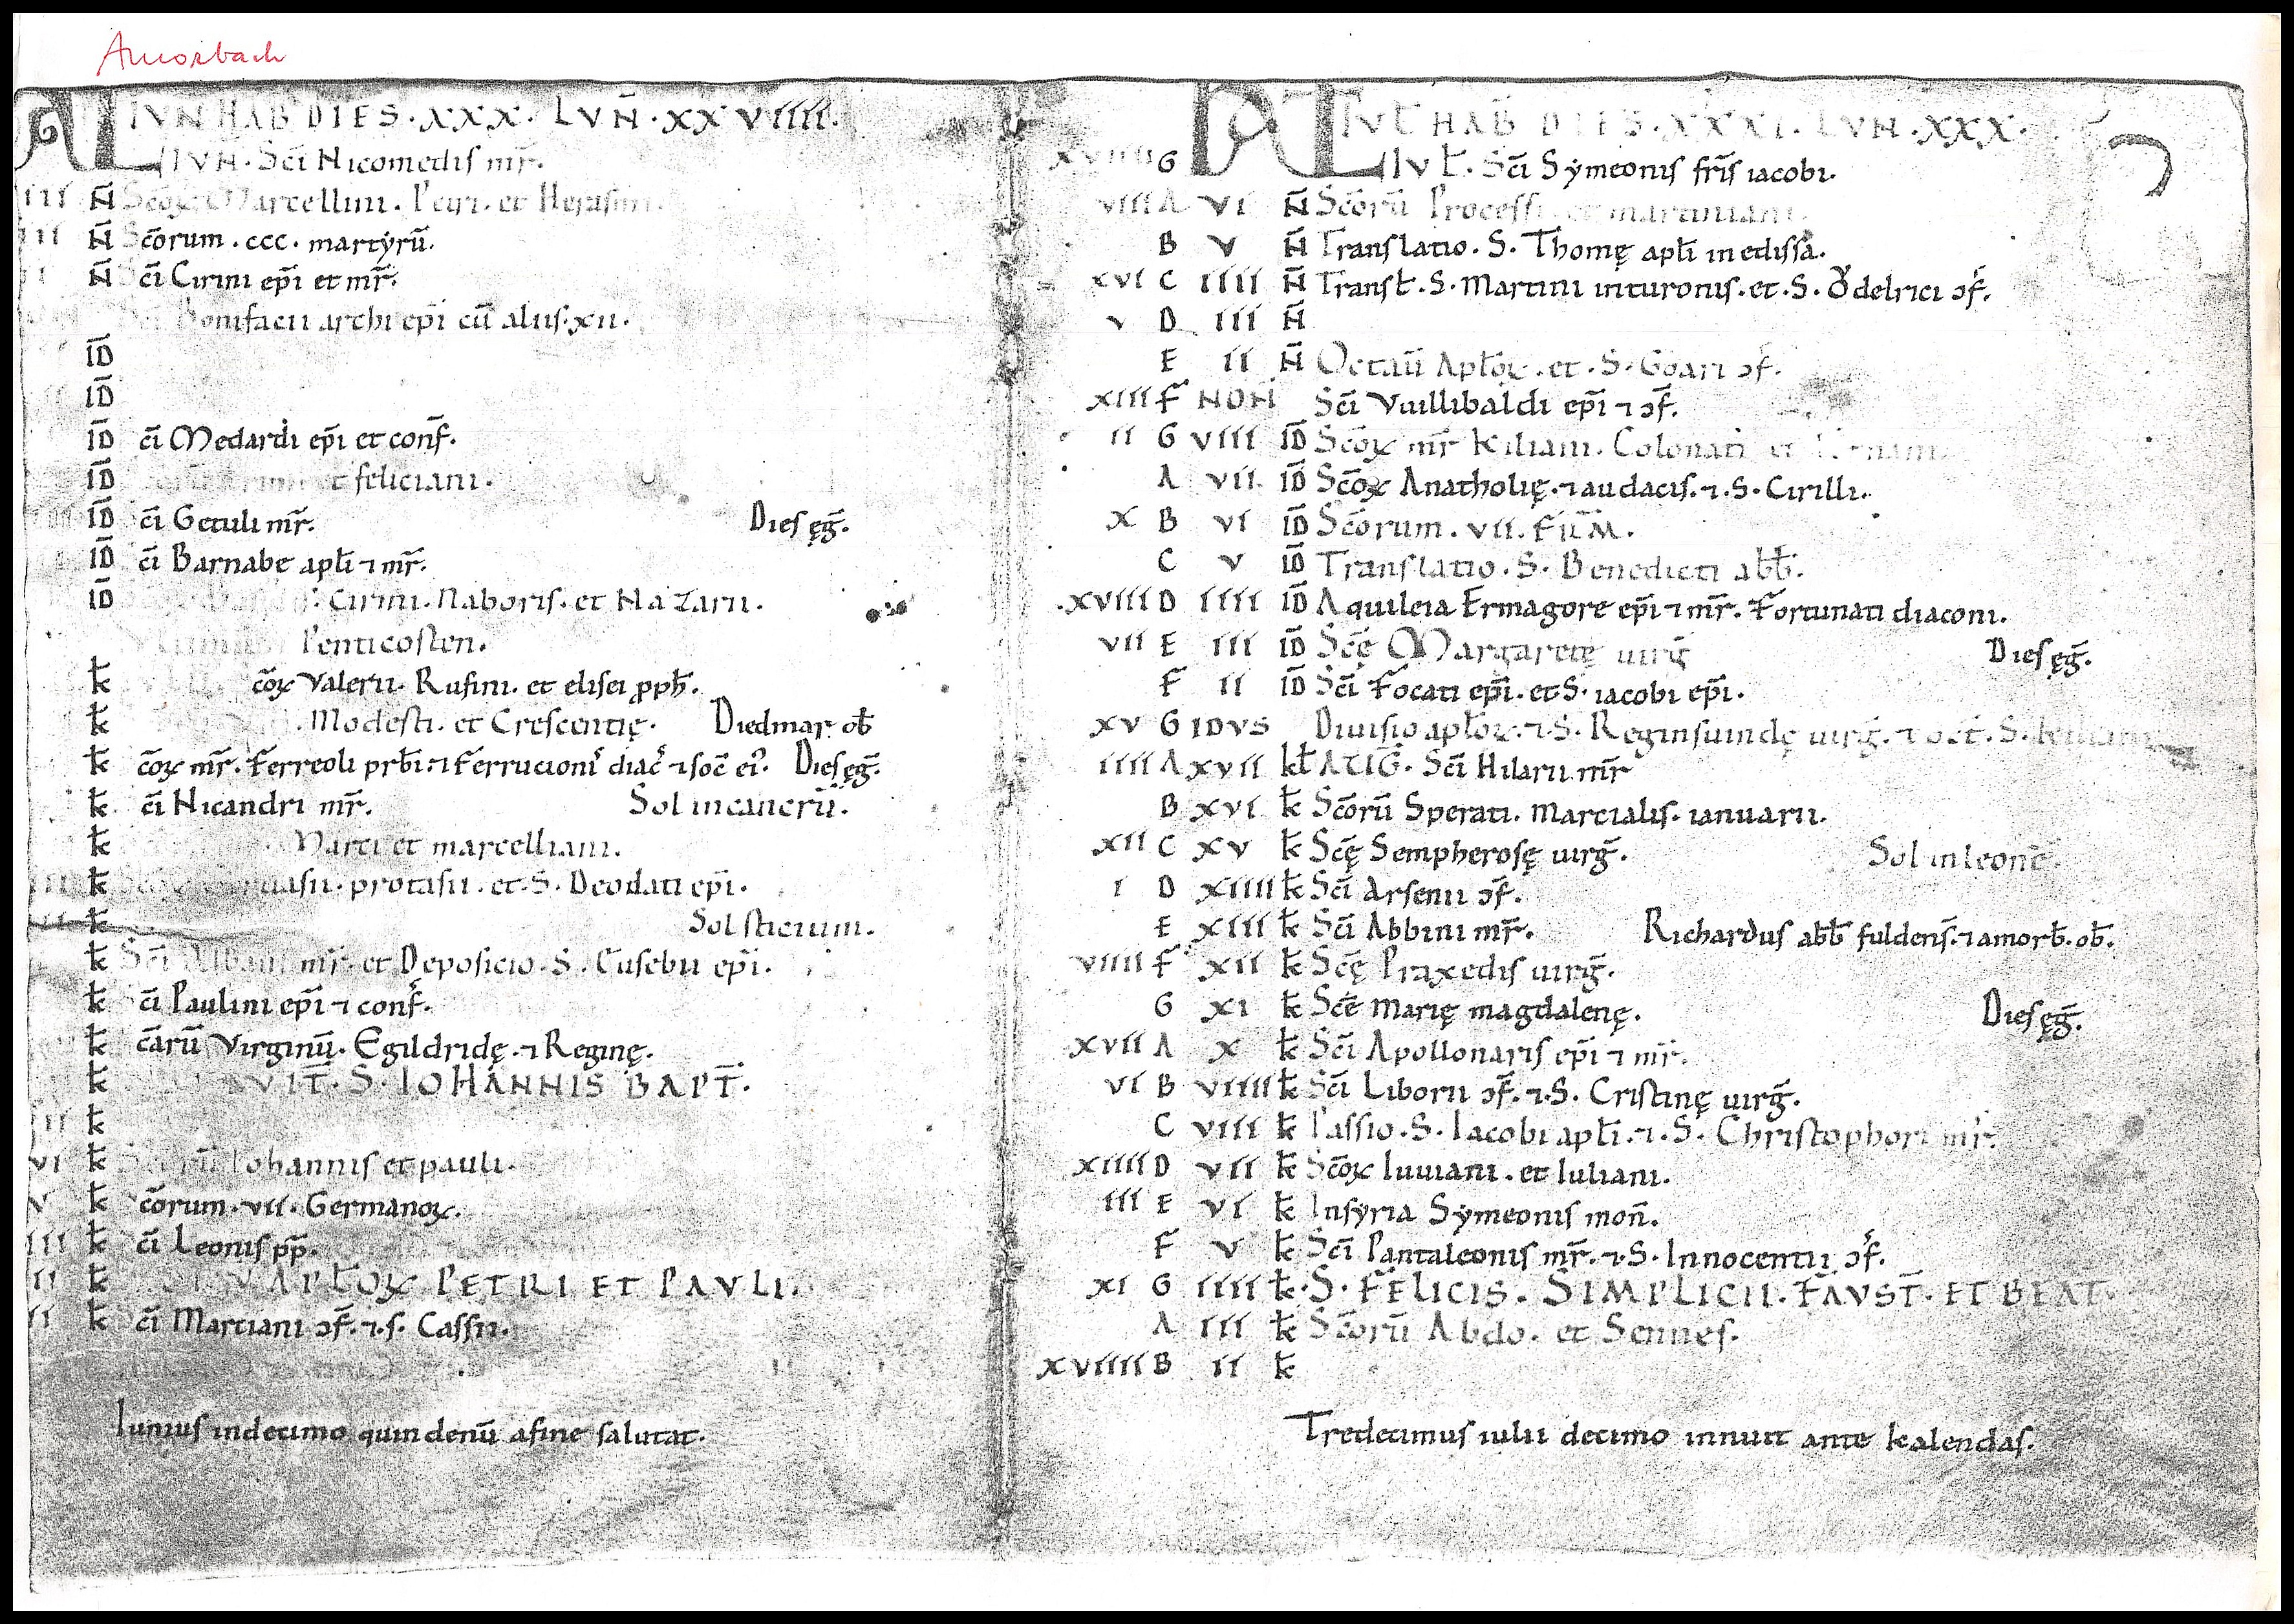 Amorbach
KL IVN HAB DIES · XXX · LVN̄ · XXVIIII ·
IVN · Sc̄i Nicomedis mr̄.
III N̄ Scōꝝ Marcellini . Petri . et Herasmi .
III N̄ Scōrum . ccc . martyrū.
N̄ c̄i Cirini ep̄i et mr̄.
Bonifacii archi ep̄i cū aliis . xii .
ID̄
ID̄
ID̄ c̄i Medardi ep̄i et conf̄.
ID̄ et feliciani .
ID̄ c̄i Getuli mr̄. Dies ęḡ.
ID̄ c̄i Barnabe apl̄i ⁊ mr̄.
ID̄ Cirini . Naboris . et Nazarii .
Penticosten .
k̄ cōꝝ Valerii . Rufini . et elisei ꝓph̄.
k̄ . Modesti . et Crescentię . Diedmar ob̄
k̄ cōꝝ mr̄. Ferreoli prb̄i . ⁊ Ferrucioni᷒ diac̄ ⁊ soc̄ ei᷒. Dies ęḡ.
k̄ c̄i Nicandri mr̄. Sol in cancrū.
k̄ Marci et marcelliani .
k̄ protasii . et . S . Deodati ep̄i .
k̄ Sol sticium .
k̄ Sc̄i Albani mr̄ . et Deposicio . S . Eusebii ep̄i .
k̄ c̄i Paulini ep̄i ⁊ conf̄.
k̄ c̄arū Virginū . Egildridę . ⁊ Reginę .
k̄ VIT̄ . S . IOHANNIS BAPT̄ .
III k̄
VI k̄ Iohannis et pauli .
V k̄ cōrum . vii . Germanoꝝ .
III k̄ c̄i Leonis pp̄.
III k̄ APL̄OꝜ PETRI ET PAVLI .
II k̄ c̄i Marciani ↄf̄. ⁊ . s . Cassii .
Iunius in decimo quindenū a fine salutat .
KL IVL̄ HAB̄ DIES . XXXI . LVN . XXX .
XVIIII G IVL̄ . Sc̄i Symeonis fr̄is iacobi .
VIII A VI N̄ Scōrū Processi et martiniani .
B V N̄ Translatio . S . Thomę apl̄i in edissa .
XVI C IIII N̄ Transl̄ . S . Martini in turonis . et . S . Ŏdelrici ↄf̄.
V D III N̄
E II N̄ Octau̅ Apl̄oꝝ . et . S . Goari ↄf̄.
XIII F NON Sc̄i Vuillibaldi ep̄i ⁊ ↄf̄.
II G VIII ID̄ Scōꝝ mr̄ Kiliani . Colonati et
A VII ID̄ Scōꝝ Anatholię . ⁊ audacis . ⁊ . S . Cirilli .
X B VI ID̄ Scōrum . vii . FIL̄M .
C V ID̄ Translatio . S . Benedicti abb̄.
XVIII D IIII ID̄ Aquileia Ermagore ep̄i ⁊ mr̄. Fortunati diaconi .
VII E III ID̄ Sc̄ę Margaretę uirḡ Dies ęḡ.
F II ID̄ Sc̄i Focati ep̄i . et S . iacobi ep̄i .
XV G IDVS Diuisio apl̄oꝝ . ⁊ . S . Reginsuindę uirḡ . ⁊ oct̄ . S . Kiliani
IIII A XVII kl̄ AVḠ . Sc̄i Hilarii mr̄
B XVI k̄ Scōrū Sperati . Marcialis . ianuarii .
XII C XV k̄ Sc̄ę Sempherosę uirḡ. Sol in leonē.
I D XIIII k̄ Sc̄i Arsenii ↄf̄.
E XIII k̄ Sc̄i Abbini mr̄. Richardus abb̄ fuldens̄ . ⁊ amorb̄ . ob̄.
VIIII F XII k̄ Sc̄ę Praxedis uirḡ.
G XI k̄ Sc̄ę Marię magdalenę . Dies ęḡ.
XVII A X k̄ Sc̄i Apollonaris ep̄i ⁊ mr̄.
VI B VIIII k̄ Sc̄i Liborii ↄf̄. ⁊ . S . Cristinę uirḡ.
C VIII k̄ Passio . S . Iacobi apl̄i . ⁊ . S . Christophori mr̄.
XIIII D VII k̄ Scōꝝ Iuuiani . et Iuliani .
III E VI k̄ In syria Symeonis mon̄.
F V k̄ Sc̄i Pantaleonis mr̄. ⁊ . S . Innocentii ↄf̄.
XI G IIII k̄ . S . FELICIS . SIMPLICII . FAVST̄ . ET BEAT .
A III k̄ Scōrū Abdo . et Sennes .
XVIIII B II k̄
Tredecimus iulii decimo innuit ante kalendas .